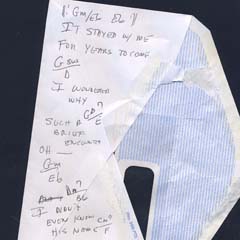 ‖: Gm/Eb Bb :‖
IT STAYED W/ ME
FOR YEARS TO COME
Gsus
D
I WONDERED
WHY
G#?
SUCH A E
BRIEF
ENCOUNTER
OH
Gm
Eb
Dm?
Bb
I DIDN'T
EVEN KNOW Cm?
HIS NAME F